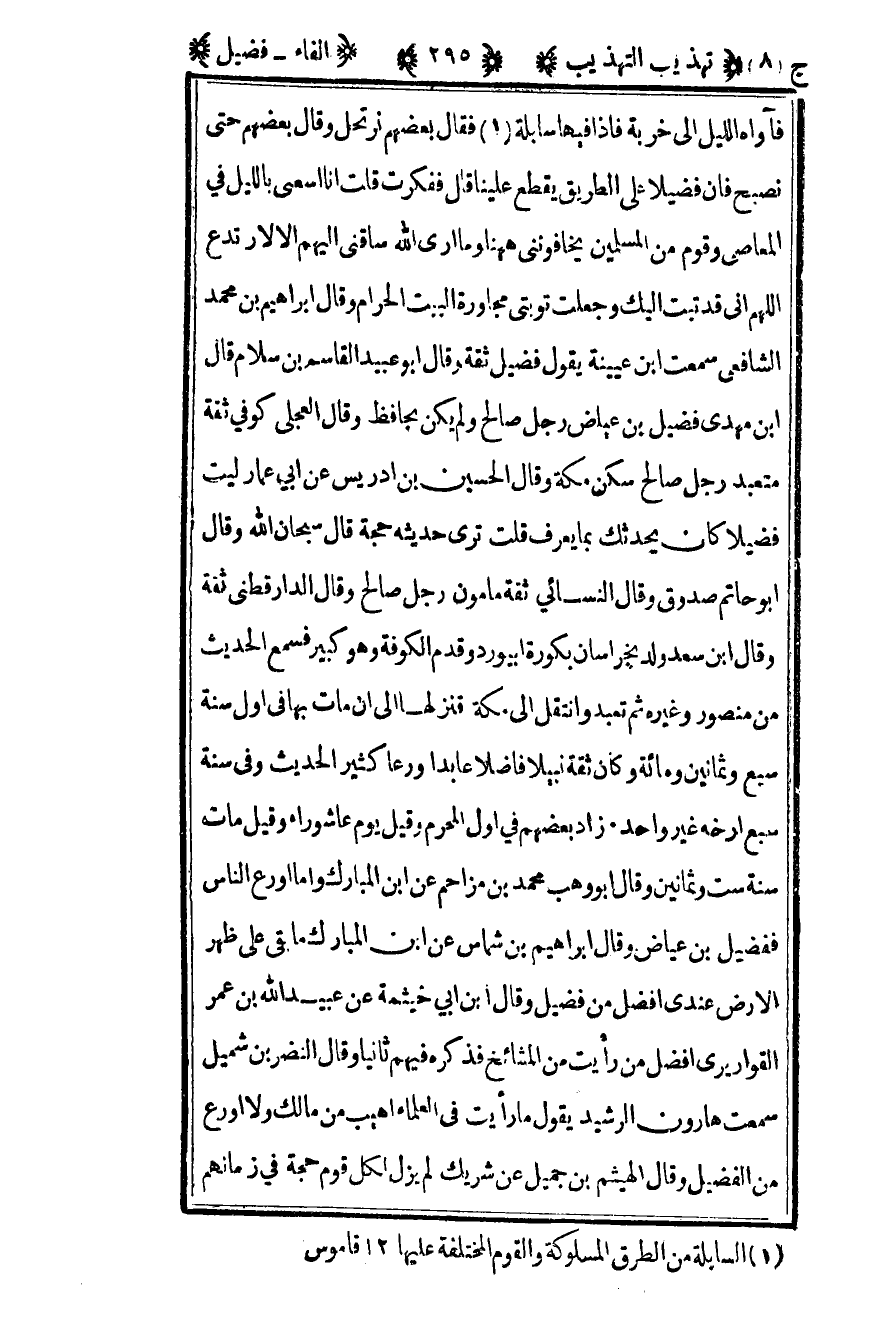 ج (٨) ﴿ تهذيب التهذيب ﴾ ﴿ ٢٩٥ ﴾ ﴿ الفاء ـ فضيل ﴾
فآواه الليل الى خربة فاذا فيها سابلة (١) فقال بعضهم نرتحل وقال بعضهم حتى
نصبح فان فضيلا على الطريق يقطع علينا قال ففكرت قلت انا اسعى بالليل في
المعاصي وقوم من المسلمين يخافونني ههنا وما ارى الله ساقني اليهم الا لارتدع
اللهم اني قد تبت اليك وجعلت توبتي مجاورة البيت الحرام وقال ابراهيم بن محمد
الشافعي سمعت ابن عيينة يقول فضيل ثقة وقال ابو عبيد القاسم بن سلام قال
ابن مهدى فضيل بن عياض رجل صالح ولم يكن بحافظ وقال العجلي كوفي ثقة
متعبد رجل صالح سكن مكة وقال الحسين بن ادريس عن ابي عمار ليت
فضيلا كان يحدثك بما يعرف قلت ترى حديثه حجة قال سبحان الله وقال
ابو حاتم صدوق وقال النسـائي ثقة مامون رجل صالح وقال الدارقطني ثقة
وقال ابن سعد ولد بخراسان بكورة ابيورد وقدم الكوفة وهو كبير فسمع الحديث
من منصور وغيره ثم تعبد وانتقل الى مكة فنزلهـا الى ان مات بها في اول سنة
سبع وثمانين ومائة وكان ثقة نبيلا فاضلا عابدا ورعا كثير الحديث وفي سنة
سبع ارخه غير واحد . زاد بعضهم في اول المحرم وقيل يوم عاشوراء وقيل مات
سنة ست وثمانين وقال ابو وهب محمد بن مزاحم عن ابن المبارك واما اورع الناس
ففضيل بن عياض وقال ابراهيم بن شماس عن ابن المبارك ما بقى على ظهر
الارض عندى افضل من فضيل وقال ابن ابي خيثمة عن عبيـد الله بن عمر
القواريرى افضل من رأيت من المشائخ فذكره فيهم ثانيا وقال النضر بن شميل
سمعت هارون الرشيد يقول ما رأيت في العلماء اهيب من مالك ولا اورع
من الفضيل وقال الهيثم بن جميل عن شريك لم يزل لكل قوم حجة في زمانهم
(١) السابلة من الطرق المسلوكة والقوم المختلفة عليها ١٢ قاموس